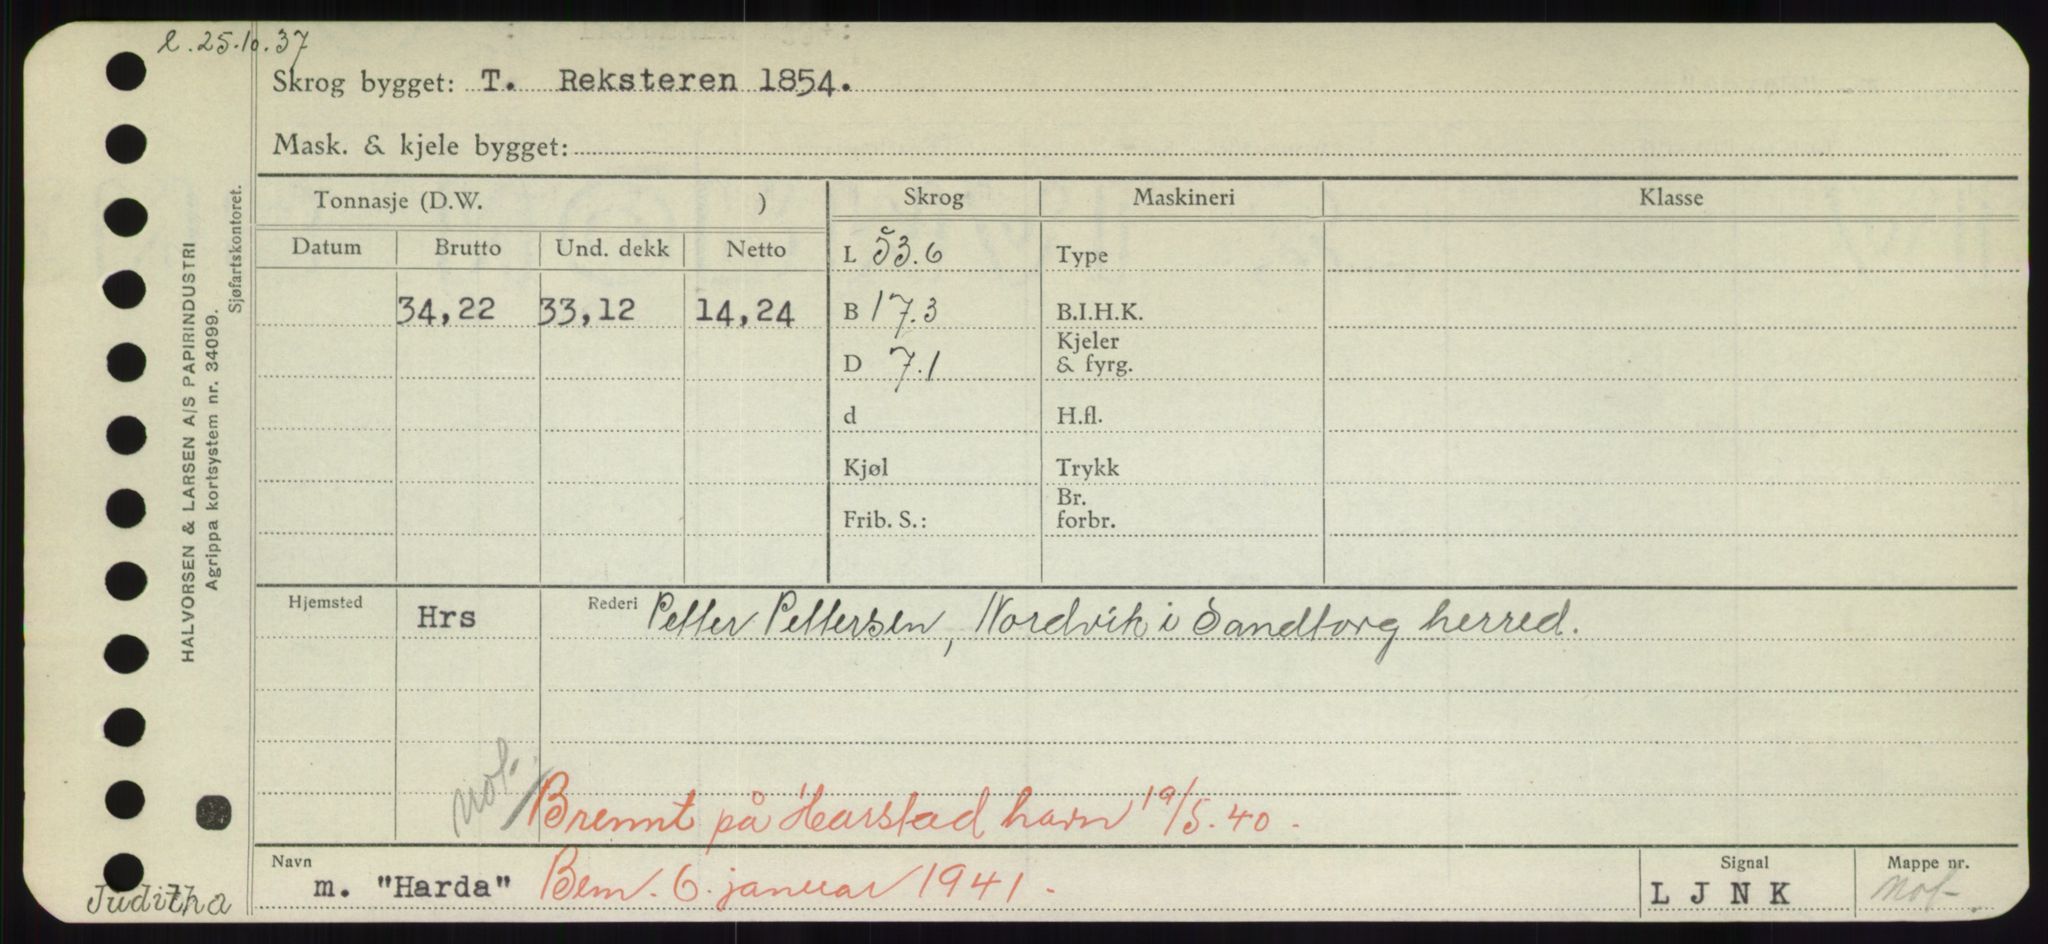 l. 25.10.37
Skrog bygget: T. Reksteren 1854.
Mask. & kjele bygget:
HALVORSEN & LARSEN A/S PAPIRINDUSTRI
Agrippa kortsystem nr. 34099.
Sjøfartskontoret.
Tonnasje (D.W. ) Skrog Maskineri Klasse
Datum Brutto Und. dekk Netto L 53.6 Type
34,22 33,12 14,24 B 17.3 B.I.H.K.
D 7.1 Kjeler & fyrg.
d H.fl.
Kjøl Trykk
Frib. S.: Br. forbr.
Hjemsted Hrs Rederi Petter Pettersen, Nordvik i Sandtorg herred.
not. / Brennt på Harstad havn 19/5.40.
Navn m. "Harda" Bem. 6. januar 1941. Signal L J N K Mappe nr. not.
Juditha